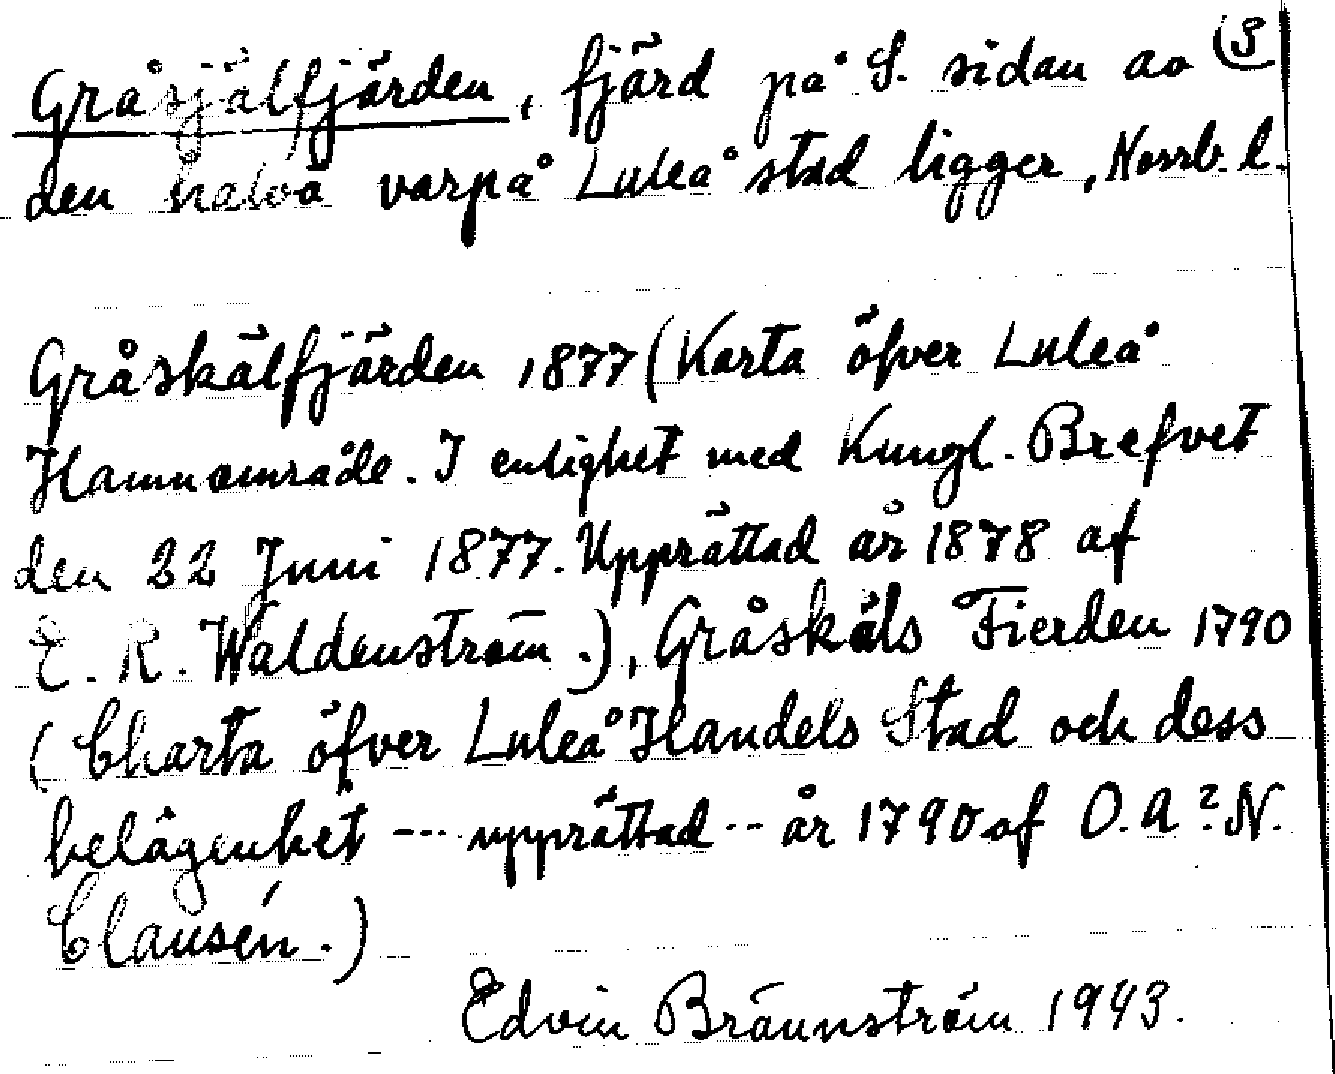 Gråsjälfjärden, fjärd på S. sidan av (3
den halvö varpå Luleå stad ligger, Norrb. l.
Gråskälfjärden 1877 (Karta öfver Luleå
Hamnområde. I enlighet med Kungl. Brefvet
den 22 Juni 1877. Upprättad år 1878 af
E. R. Waldenström.), Gråskäls Fierden 1790
(Charta öfver Luleå Handels Stad och dess
belägenhet --- upprättad -- år 1790 af O. A? N.
Clausén.)
Edvin Brännström 1943.